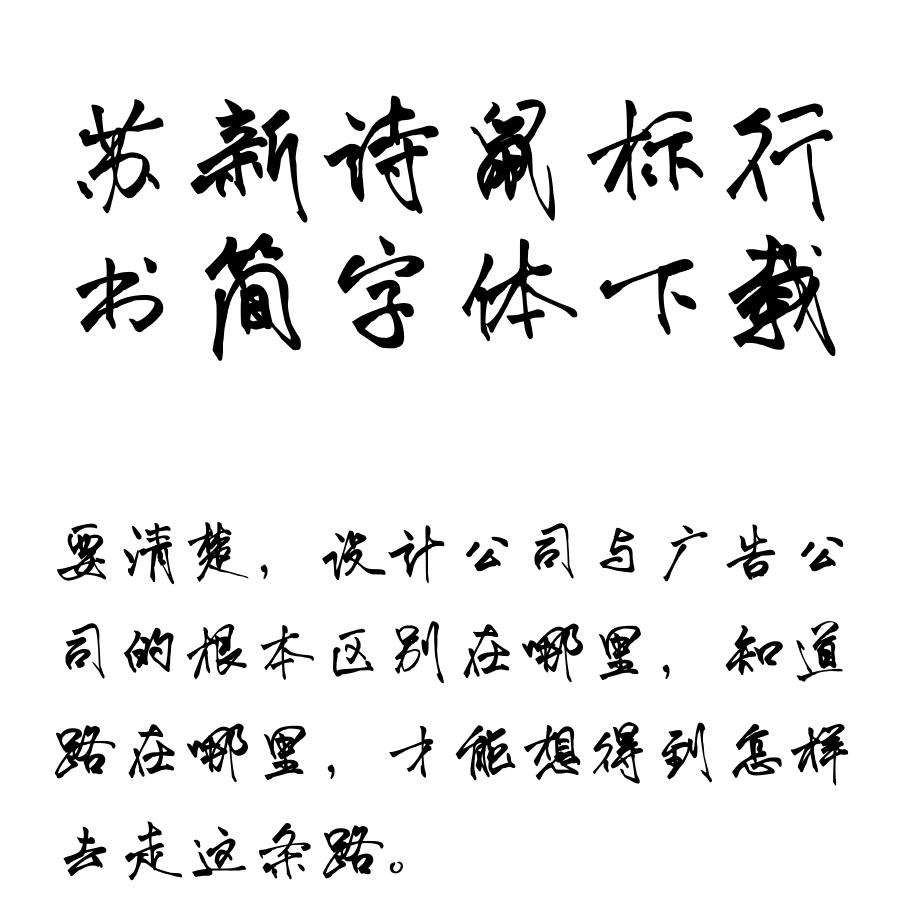 苏新诗鼠标行
书简字体下载
要清楚，设计公司与广告公
司的根本区别在哪里，知道
路在哪里，才能想得到怎样
去走这条路。